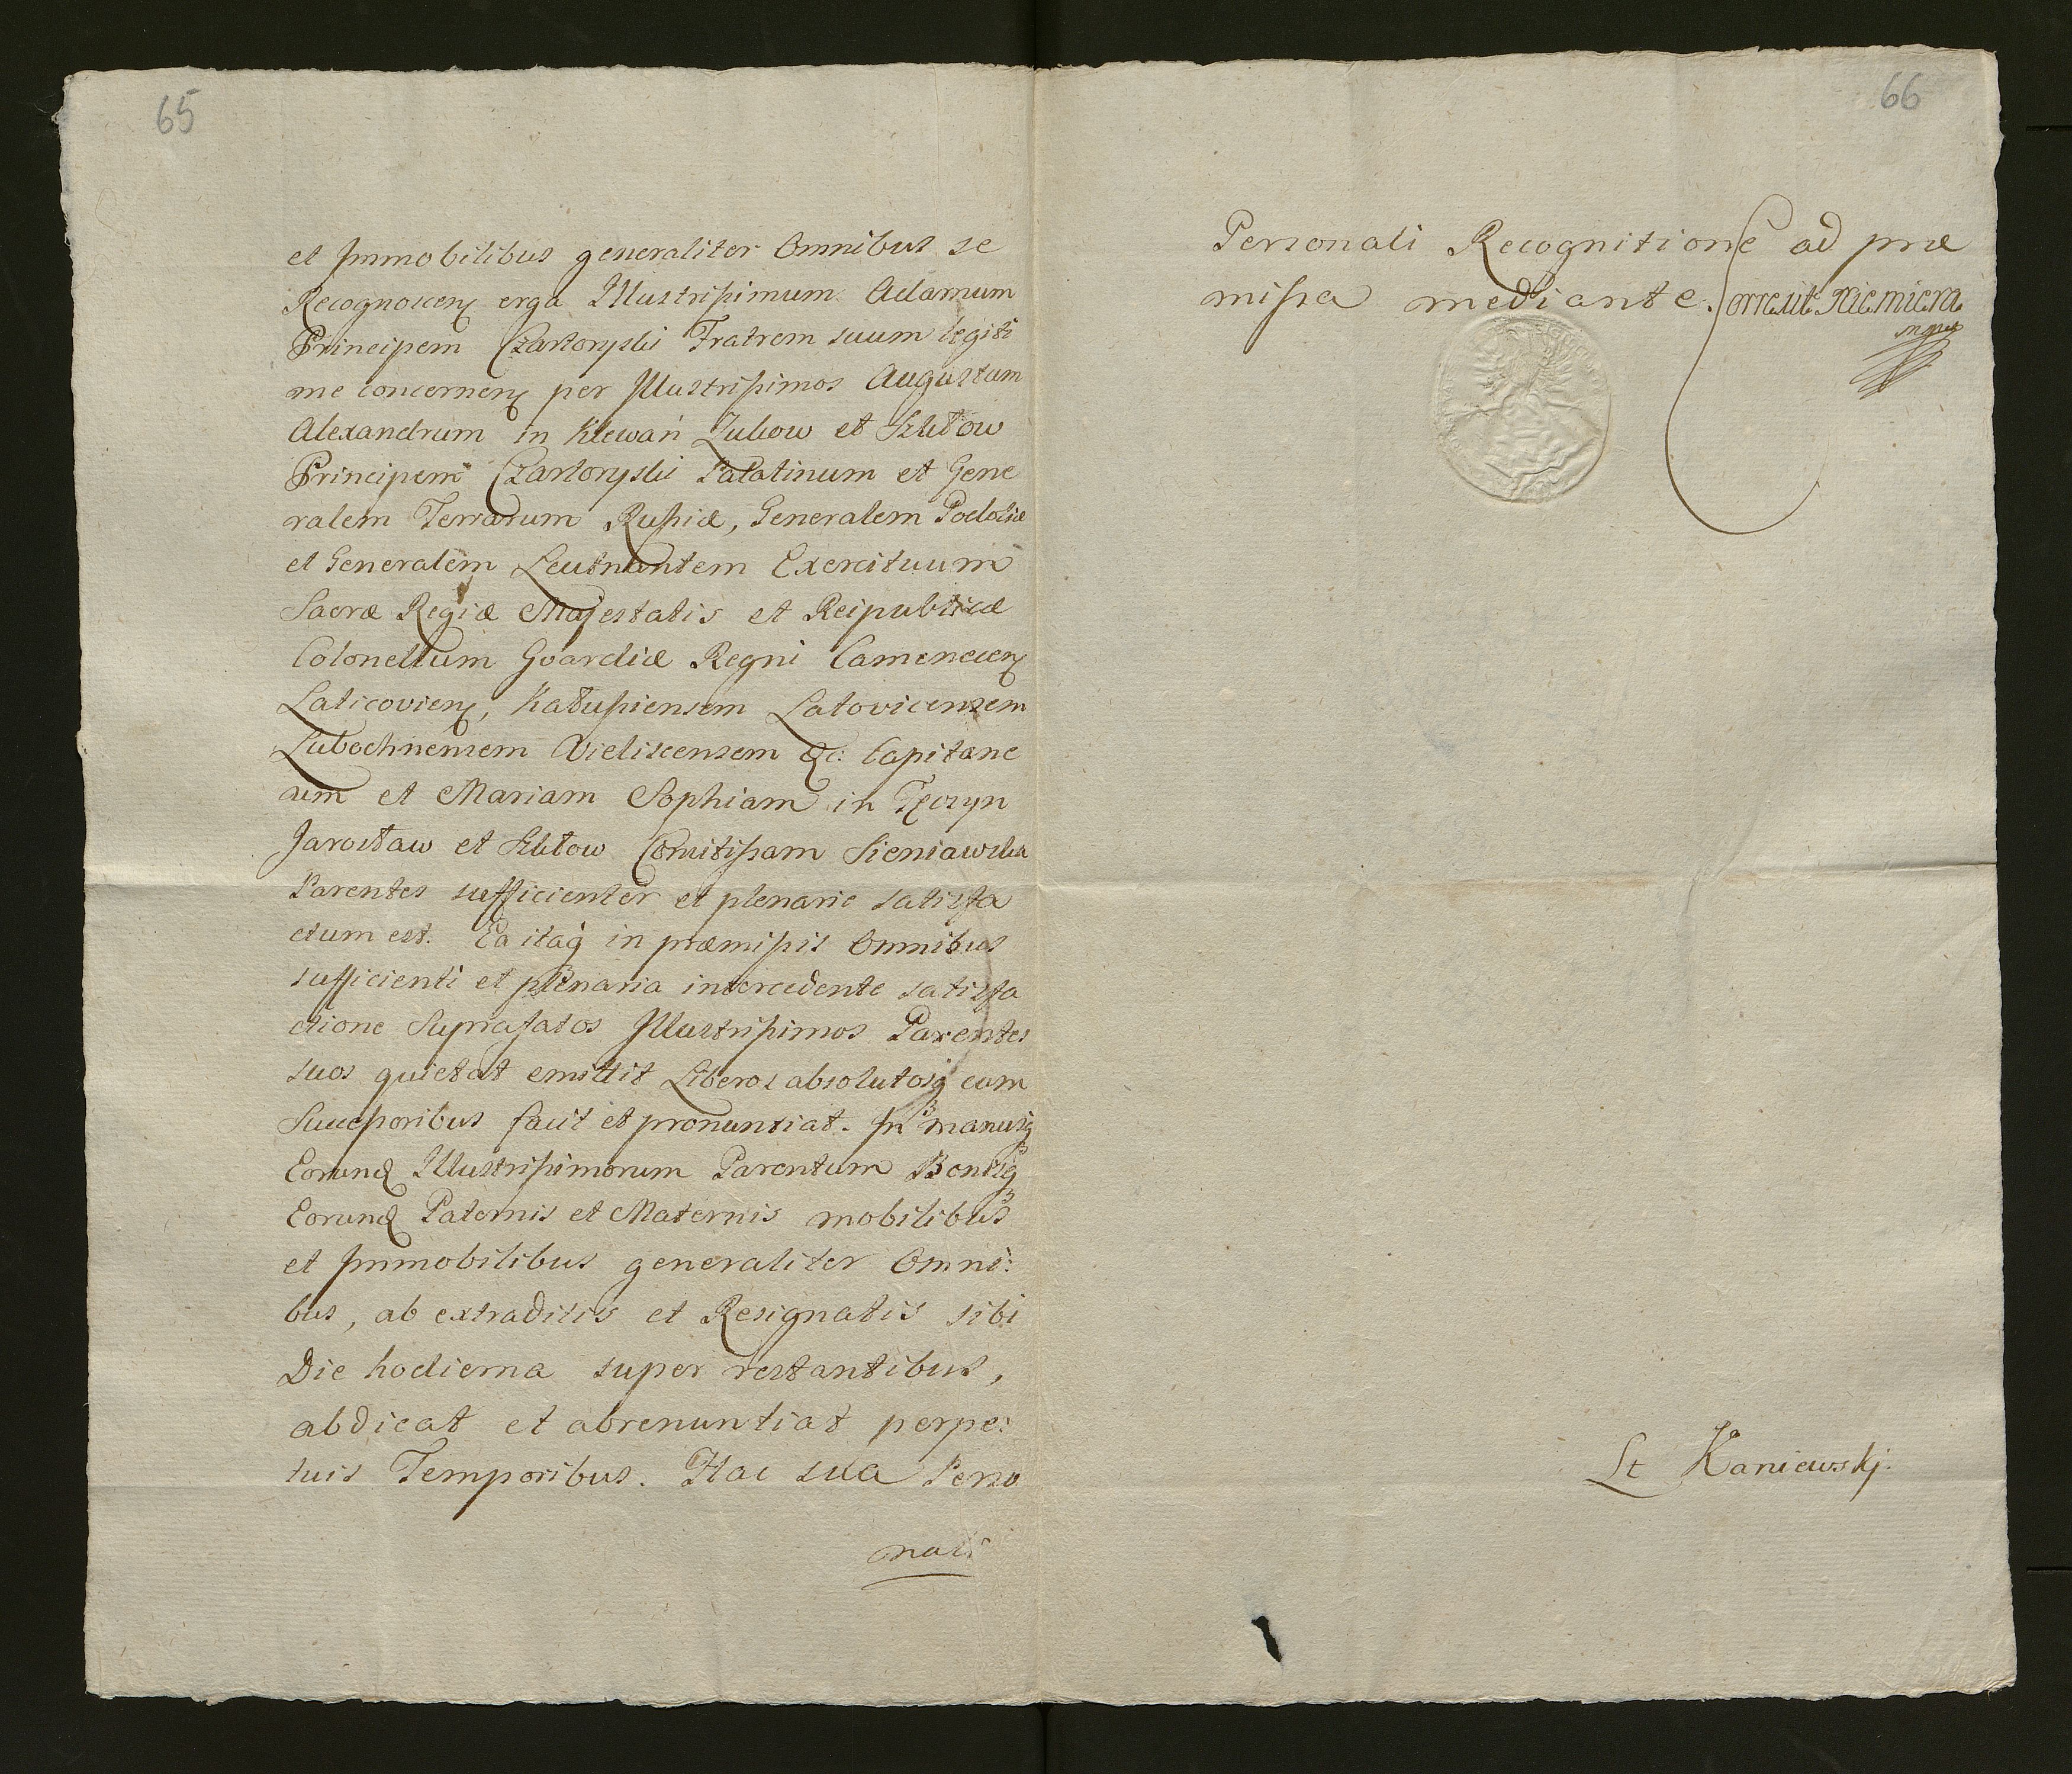 65
et Immobilibus generaliter Omnibus se
Recognoscen erga Illustrissimum Adamum
Principem Czartoryski Fratrem suum legiti
me concernen per Illustrissimos Augustum
Alexandrum in Klewań Zukow et Szkłow
Principem Czartoryski Palatinum et Gene
ralem Terrarum Russiæ, Generalem Podoliæ
et Generalem Leutnantem Exercituum
Sacræ Regiæ Majestatis et Reipublicæ
Colonellum Gvardiæ Regni Camenecen
Laticovien, Kałussiensem Latovicensem
Lubochnensem Vieliscensem &c: Capitane
um et Mariam Sophiam in Tęczyn
Jarosław et Szkłow Comitissam Sieniawska
Parentes sufficienter et plenarie satisfa
ctum est. Ea itaq in præmissis Omnibus
sufficienti et plenaria intercedente satisfa
ctione Suprafatos Illustrissimos Parentes
suos quietat emittit Liberos absolutosq cum
Successoribus facit et pronuntiat. In manusq
Eorund Illustrissimorum Parentum Bonisq
Eorund Paternis et Maternis mobilibus
et Immobilibus generaliter Omni:
bus, ab extraditis et Resignatis sibi
Die hodierna super restantibus,
abdicat et abrenuntiat perpe:
tuis Temporibus. Hac sua Perso
nali
66
Personali Recognitione ad præ
missa mediante. Correxit Niemiera
mpp
St Kaniewskj.